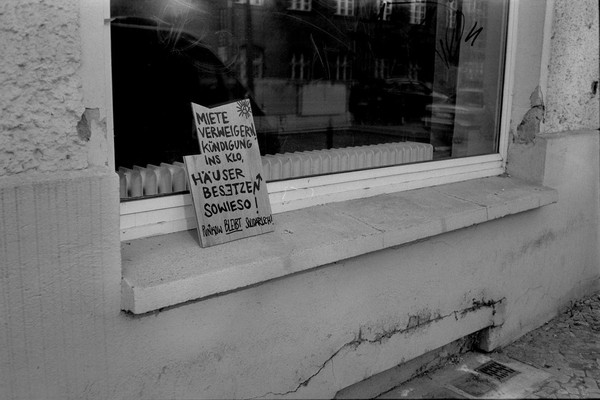 MIETE
VERWEIGERN,
KÜNDIGUNG
INS KLO,
HÄUSER
BESETZEN
SOWIESO!
PANKOW BLEIBT SOLIDARISCH!